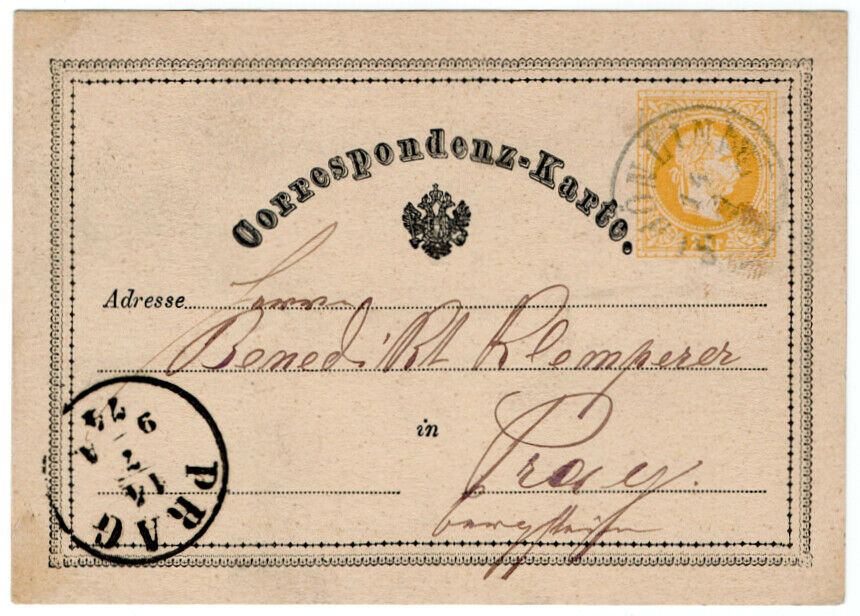 Correspondenz-Karte.
Adresse Herrn
Benedikt Klemperer
in
Prag.
PRAG
14
7
74